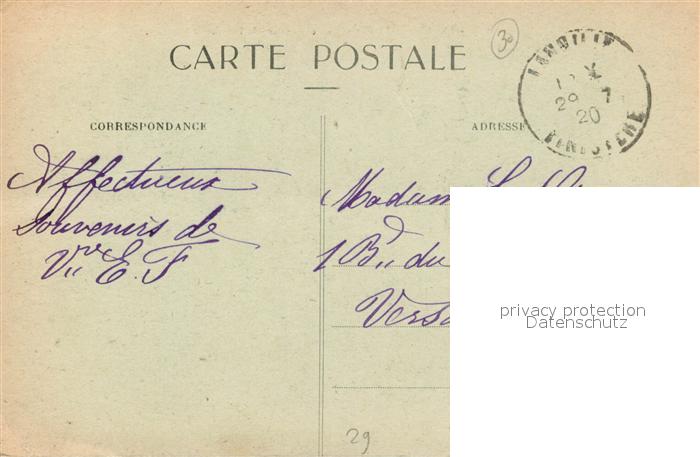 30
CARTE POSTALE
29 7
20
FINISTERE
CORRESPONDANCE
ADRESSE
Affectueux
Souvenirs de
Vve E. F
Madam
1 Bd du
Vers
privacy protection
Datenschutz
29